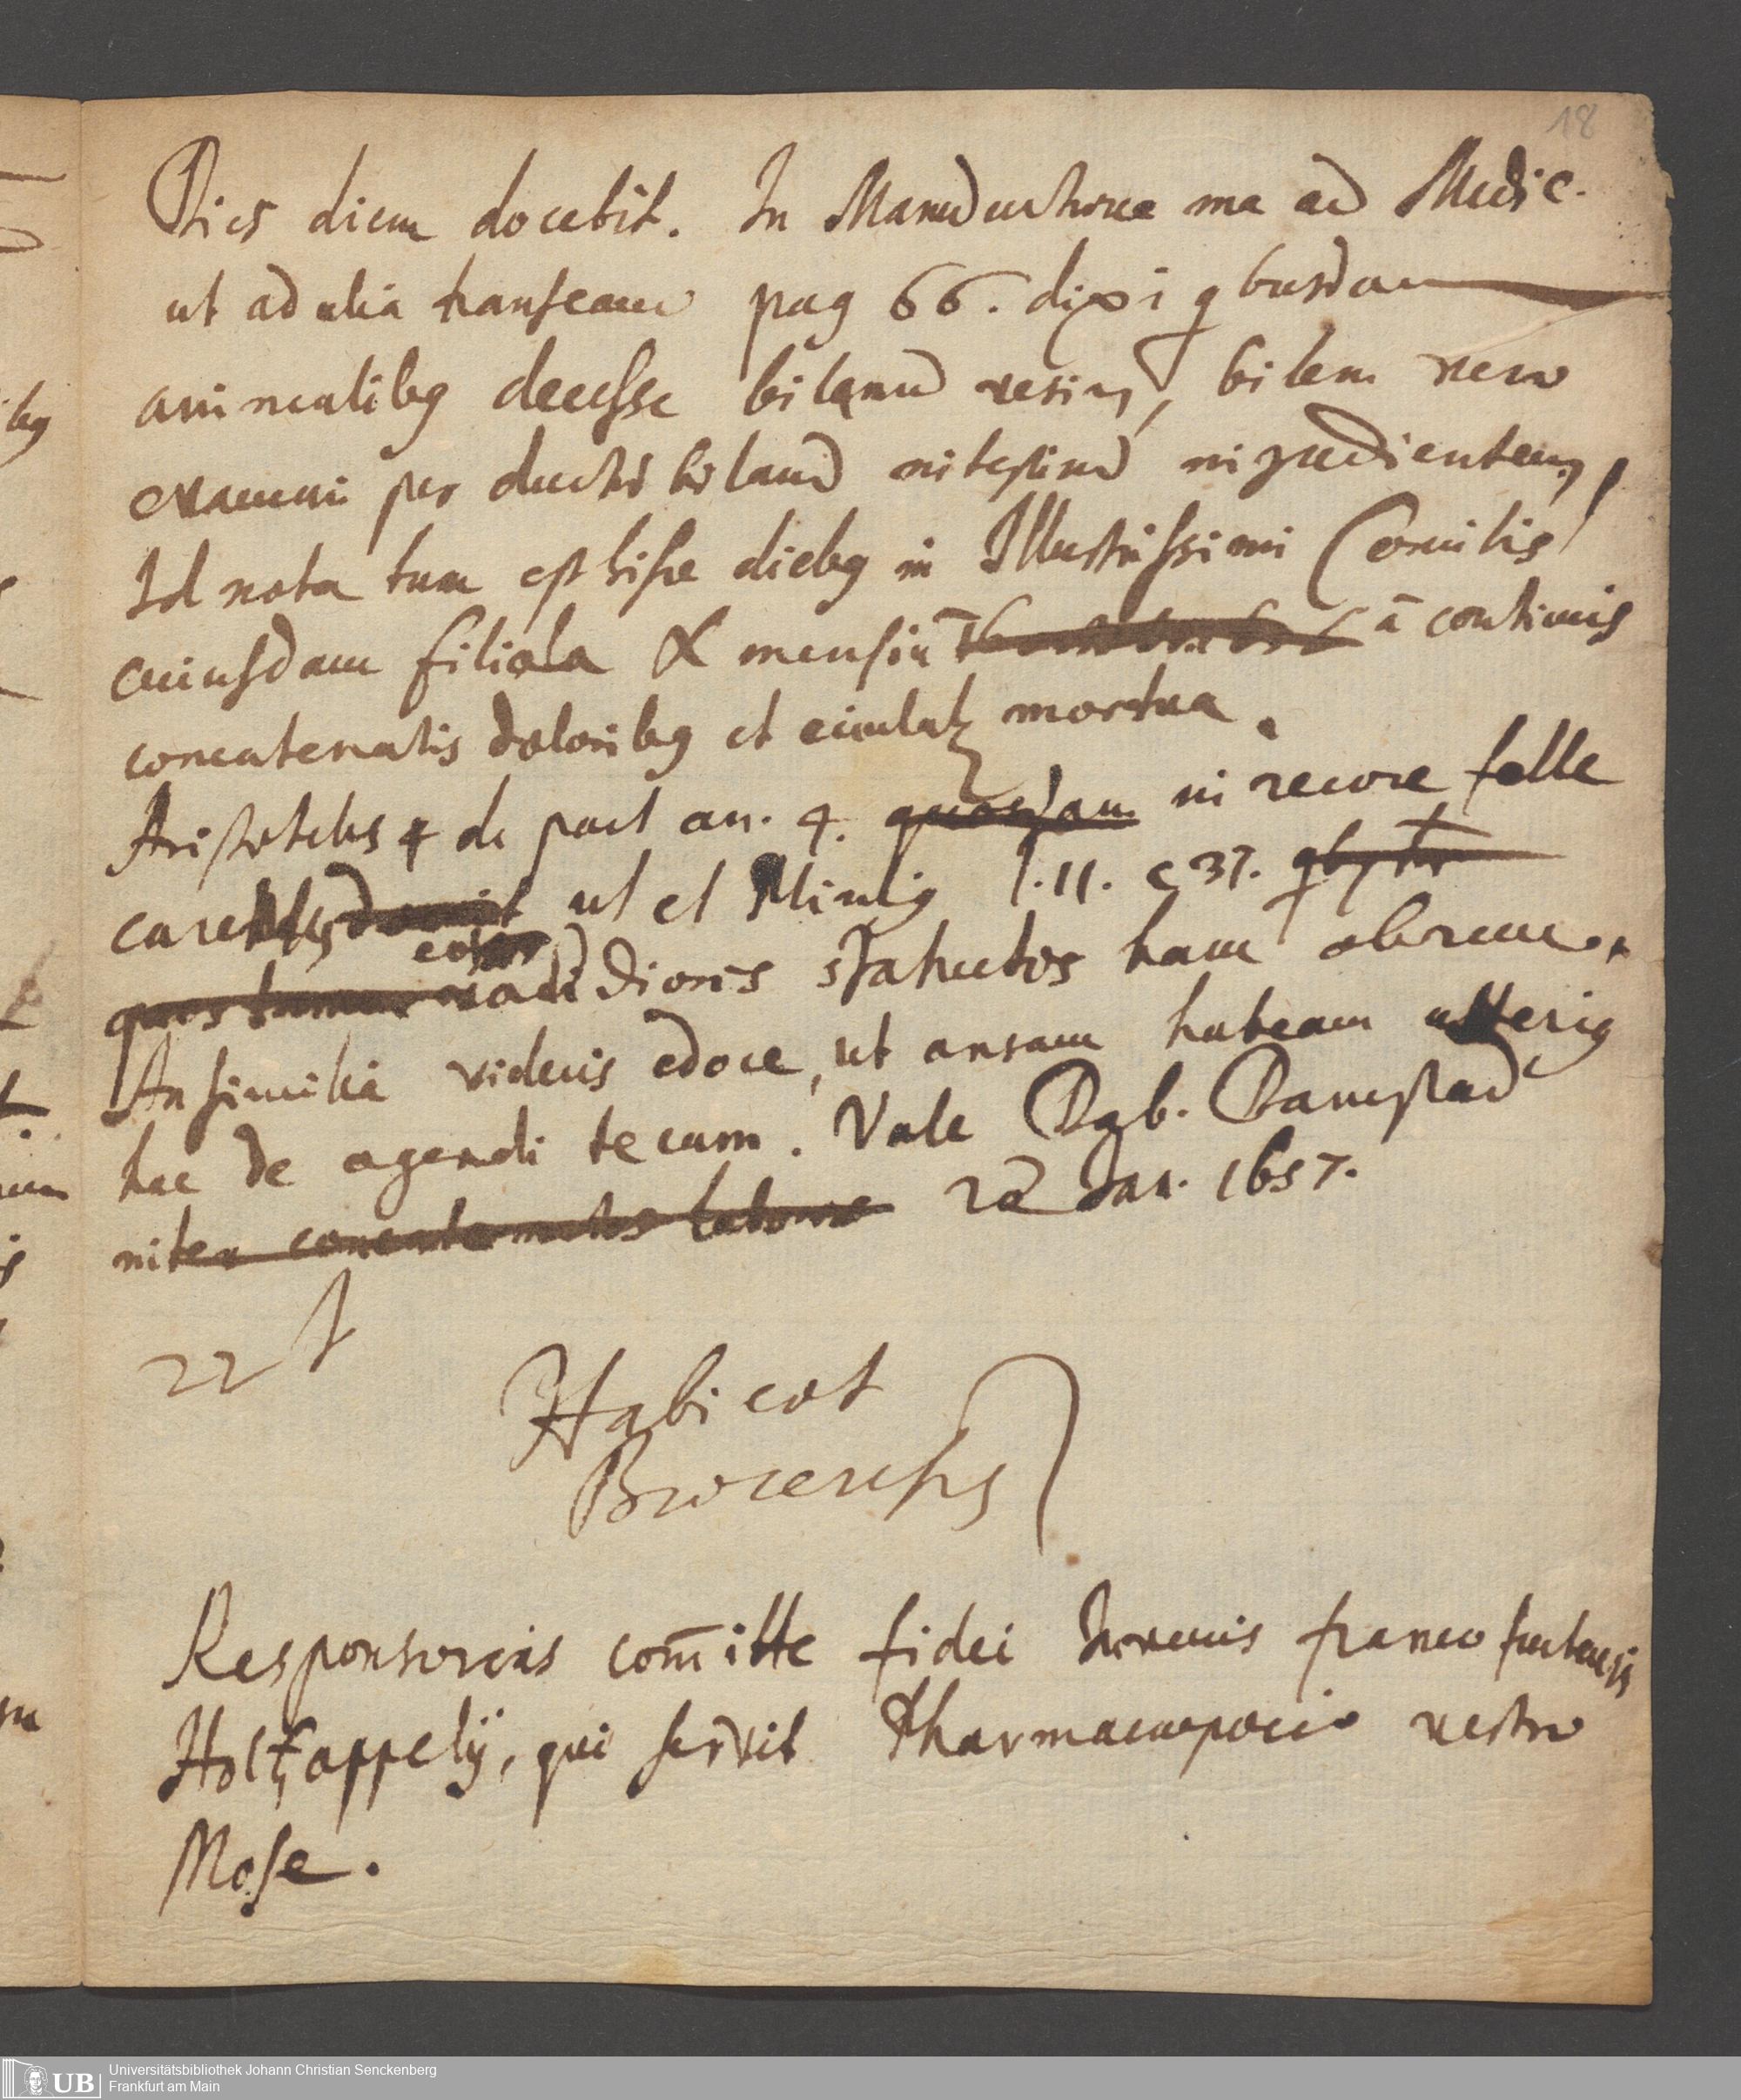 18
Dies diem docebit. In Manuductione mea ad Medic.
ut ad alia transeam pag 66. dixi qbusdam
animalibq deesse bilariã vesicã, bilem vero
evacuari per ductũ bilariũ intestinũ ingredientem,
Id notatum est hisce diebq in Illustrissimi Comitis
cuiusdam filiola X mensiũ ā continuis
concatenatis doloribq et eiulatq mortua.
Aristoteles 4 de part an. 4. quosdam in iecore felle
carentes ut et Plinius l. 11. c 37.
quos tamen eos statutos ham
An similia videris edoce, ut ansam habeam ulteriq
hac de agendi tecum. Vale Dab. Darmstad
niter concatenatos labores 22 Jan. 1657.
22
Habicot
Responsorias com̄itte fidei Juvenis francofurtensis
Holtzappelij, qui servit Pharmacopoeio vestro
Mose.
UB
Universitätsbibliothek Johann Christian Senckenberg
Frankfurt am Main